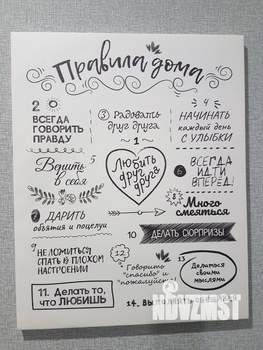 Правила дома
2 ВСЕГДА
ГОВОРИТЬ
ПРАВДУ
3 Радовать
друг друга
4
НАЧИНАТЬ
каждый день
С УЛЫБКИ
1
Любить
друг
друга
5
Верить
в себя
6 ВСЕГДА
ИДТИ
ВПЕРЕД!
7 ДАРИТЬ
объятия и поцелуи
8 Много
смеяться
10 ДЕЛАТЬ СЮРПРИЗЫ
9 НЕ ЛОЖИТЬСЯ
СПАТЬ В ПЛОХОМ
НАСТРОЕНИИ
12
Говорить
"спасибо" и
"пожалуйста"
13
Делиться
своими
мыслями
11. Делать то,
что ЛЮБИШЬ
14.